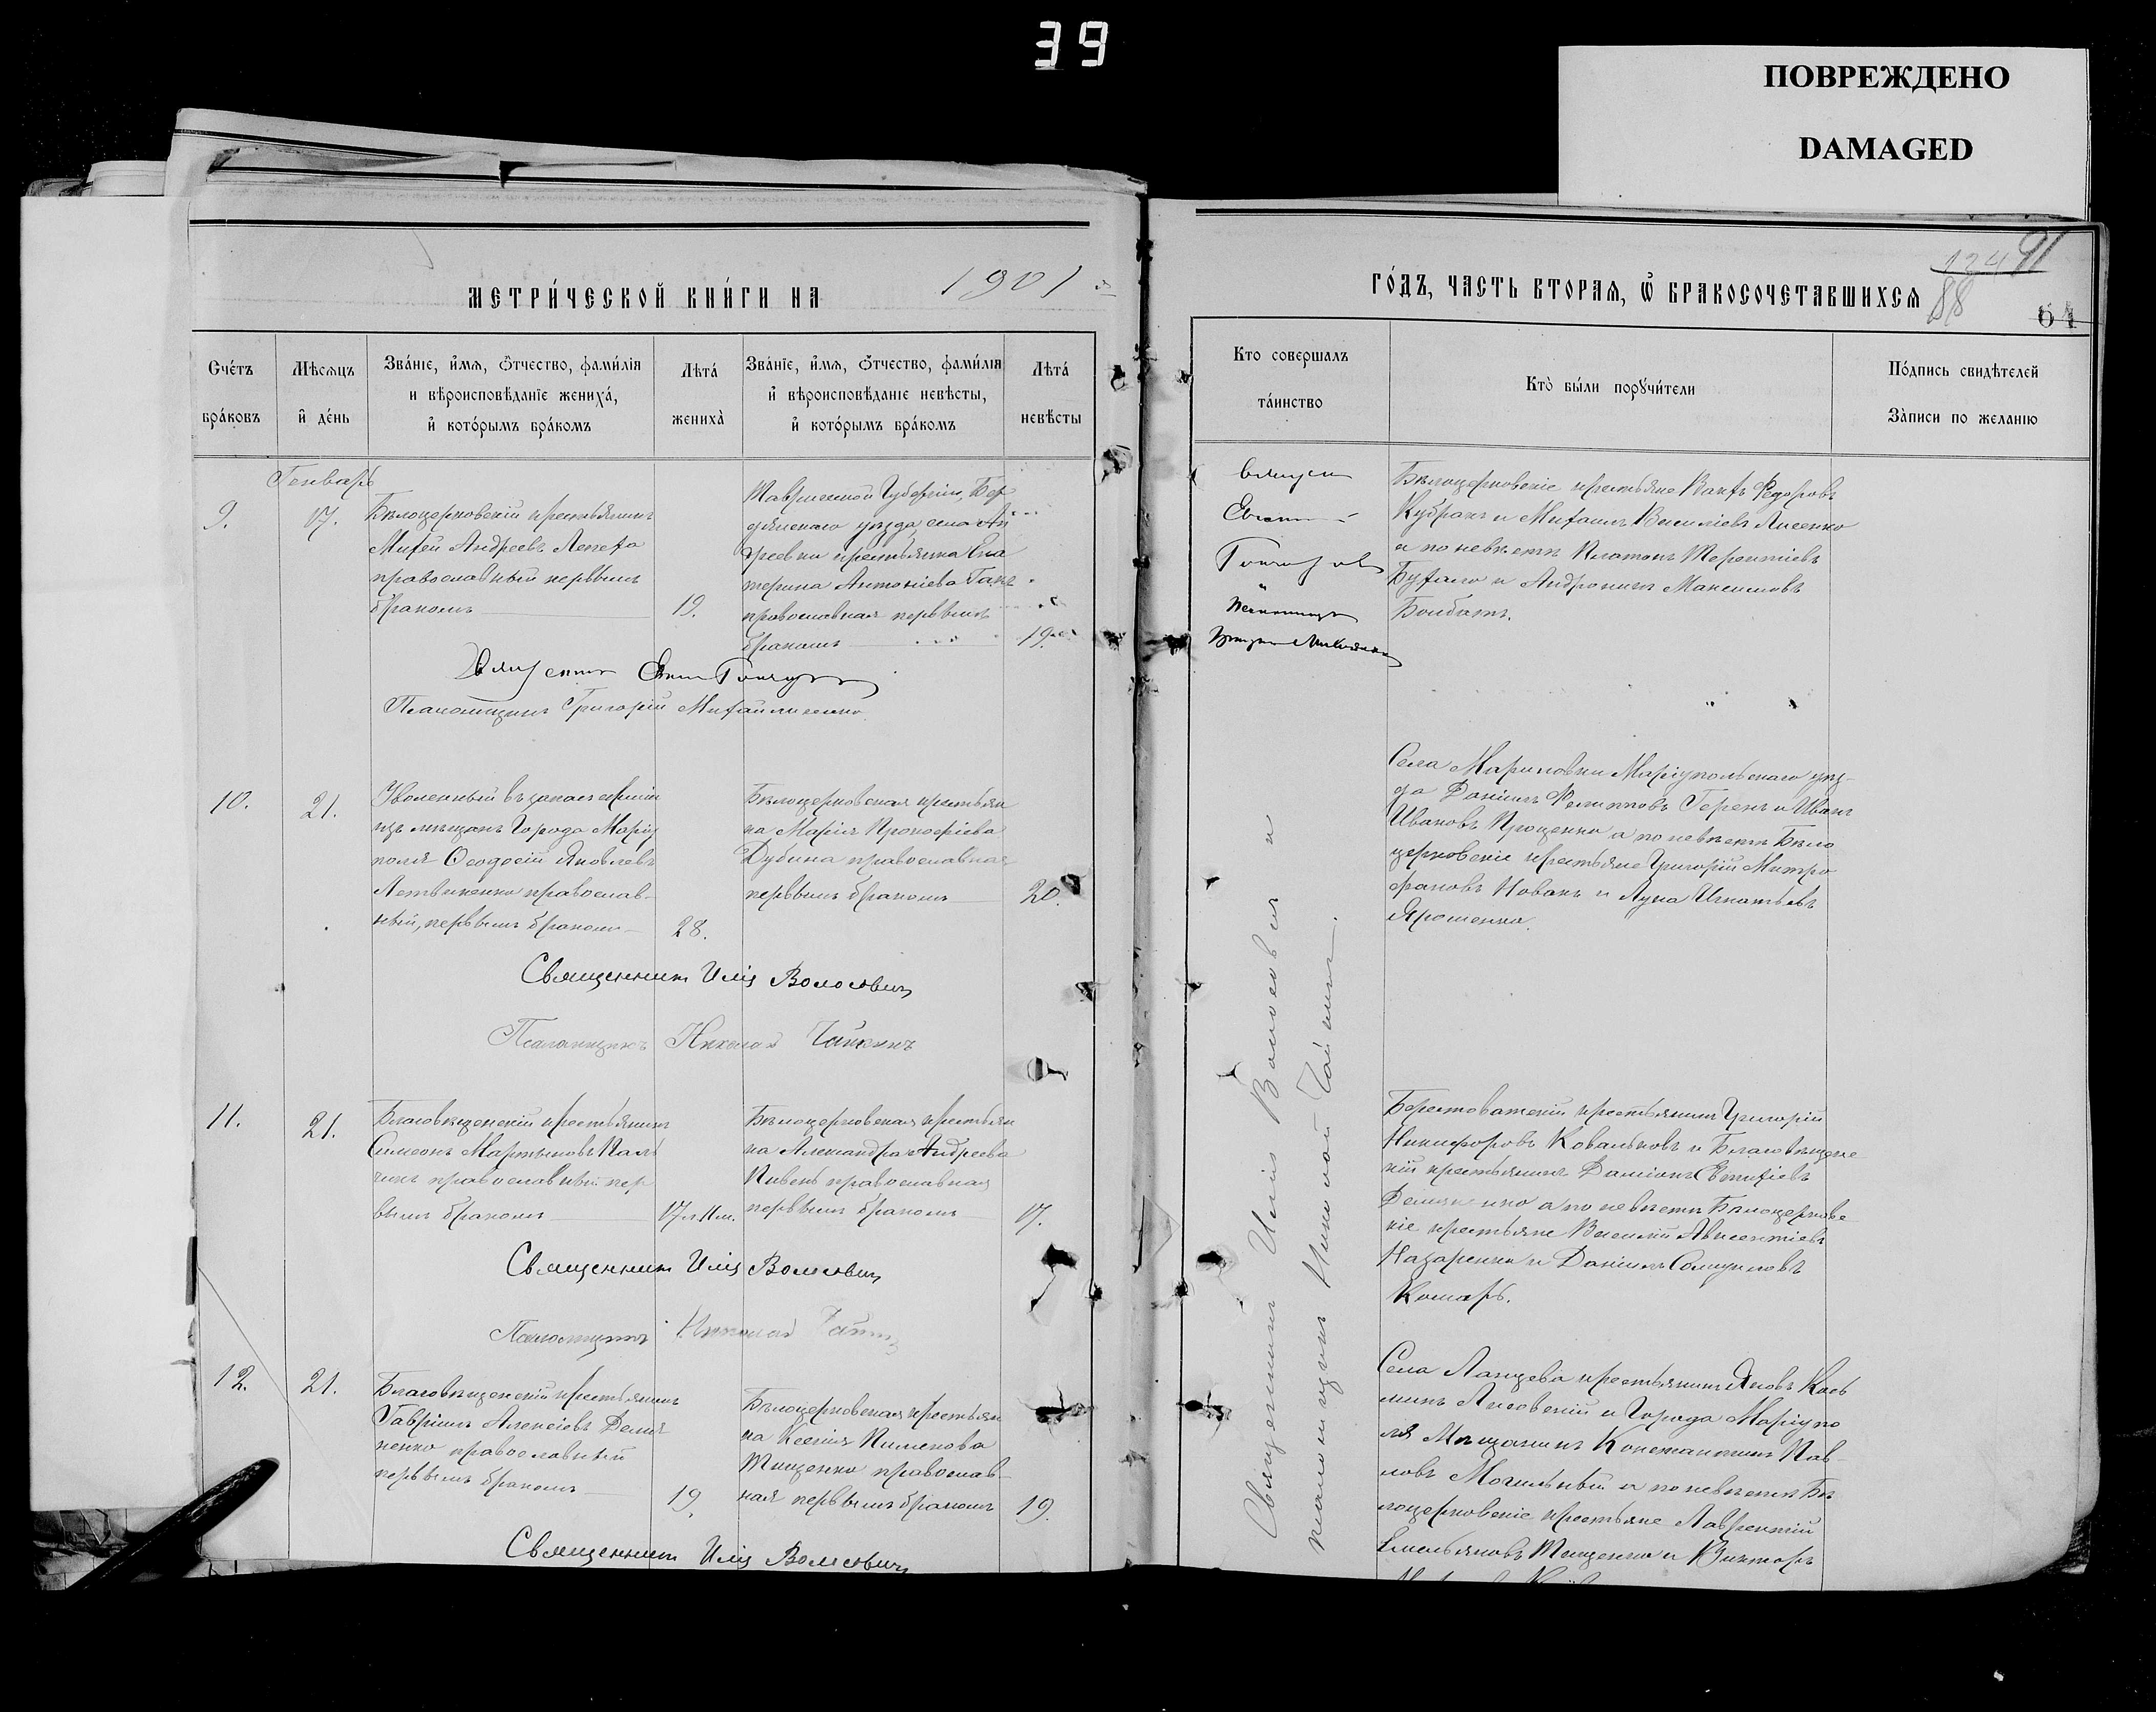 39
ПОВРЕЖДЕНО
DAMAGED
МЕТРИ́ЧЕСКОЙ КНИ́ГИ НА 1901
Счéтъ бра́ковъ
Мѣ́сѧцъ и̓ де́нь
Зва́нїе, и̓́мѧ, ѻ̓́тчество, фами́лїѧ и вѣроисповѣ́данїе жениха̀, и̓ кото́рымъ бра́комъ
Лѣта́ жениха̀
Зва́нїе, и̓́мѧ, ѻ̓́тчество, фами́лїѧ и̓ вѣроисповѣ́данїе невѣ́сты, и̓ кото́рымъ бра́комъ
Лѣта́ невѣ́сты
Генварь
9.
17.
Бѣлоцерковскій крестьянинъ
Митрей Андреевъ Лепеха
православный первымъ
бракомъ
19.
Таврической Губерніи, Бер
дянскаго уѣзда, села Ан
дреевки крестьянка Ека
терина Антоніева
православная первымъ
бракомъ
19.
Священникъ
Псаломщикъ Григорій Михайличенко
10.
21.
Уволенный въ запасъ арміи
изъ мѣщанъ Города Маріу
поля Ѳеодосій Яковлевъ
Летвиненко православ-
ный, первымъ бракомъ
28.
Бѣлоцерковская крестьян
ка Марія Прокофіева
Дубина православная
первымъ бракомъ
20.
Священникъ Илія Волосовичъ
Псаломщикъ Николай Чайкинъ
11.
21.
Благовѣщенскій крестьянинъ
Симеонъ Мартыновъ Паль
чикъ православный пер
вымъ бракомъ
17 л 11 м.
Бѣлоцерковская крестьян
ка Александра Андреева
Пивень православная
первымъ бракомъ
17.
Священникъ Илія Волосовичъ
Псаломщикъ Николай
12.
21.
Благовѣщенскій крестьянинъ
Гавріилъ Алексіевъ Демя
ненко православный
первымъ бракомъ
19.
Бѣлоцерковская крестьян
ка Ксенія Пименова
Тищенко православ-
ная первымъ бракомъ
19.
Священникъ Илія Волосовичъ
ГО́ДЪ, ЧАСТЬ ВТОРАЯ, Ѿ БРАКОСОЧЕТАВШИХСЯ
124 91
88
64
Кто совершалъ та́инство
Ктѐ бы́ли порꙋчи́тели
По́дпись свидѣ́телей За̀писи по жела́нїю
Священ
Евгеній
Гончаровъ
Псаломщикъ
Бѣлоцерковскіе крестьяне Ѳедоровъ
и Михаилъ Василіевъ Лисенко
а по невѣстѣ Платонъ Терентіевъ
и Андроникъ Максимовъ
Села Мариновки Маріупольскаго уѣз-
да Даніилъ Филиповъ Геренъ и Иванъ
Ивановъ Проценко а по невѣстѣ Бѣло
церковскіе крестьяне Григорій Митро
фановъ Новакъ и Лука Игнатьевъ
Ярошенко.
Священникъ Илія Волосовичъ и
псаломщикъ Николай Чайкинъ.
Берестоватскій крестьянинъ Григорій
Никифоровъ Ковальковъ и Благовѣщенс
кій крестьянинъ Даміанъ Евтихіевъ
а по невѣстѣ Бѣлоцерковс
кіе крестьяне Василій Авксентіевъ
Назаренко и Даніилъ Самуиловъ
Комарь.
Села Ласпева крестьянинъ Яковъ Косъ
минъ Лисовскій и Города Маріупо
ля Мѣщанинъ Константинъ Пав-
ловъ Могильный а по невѣстѣ Бѣ
лоцерковскіе крестьяне Лаврентій
Емельяновъ Тищенко и Викторъ